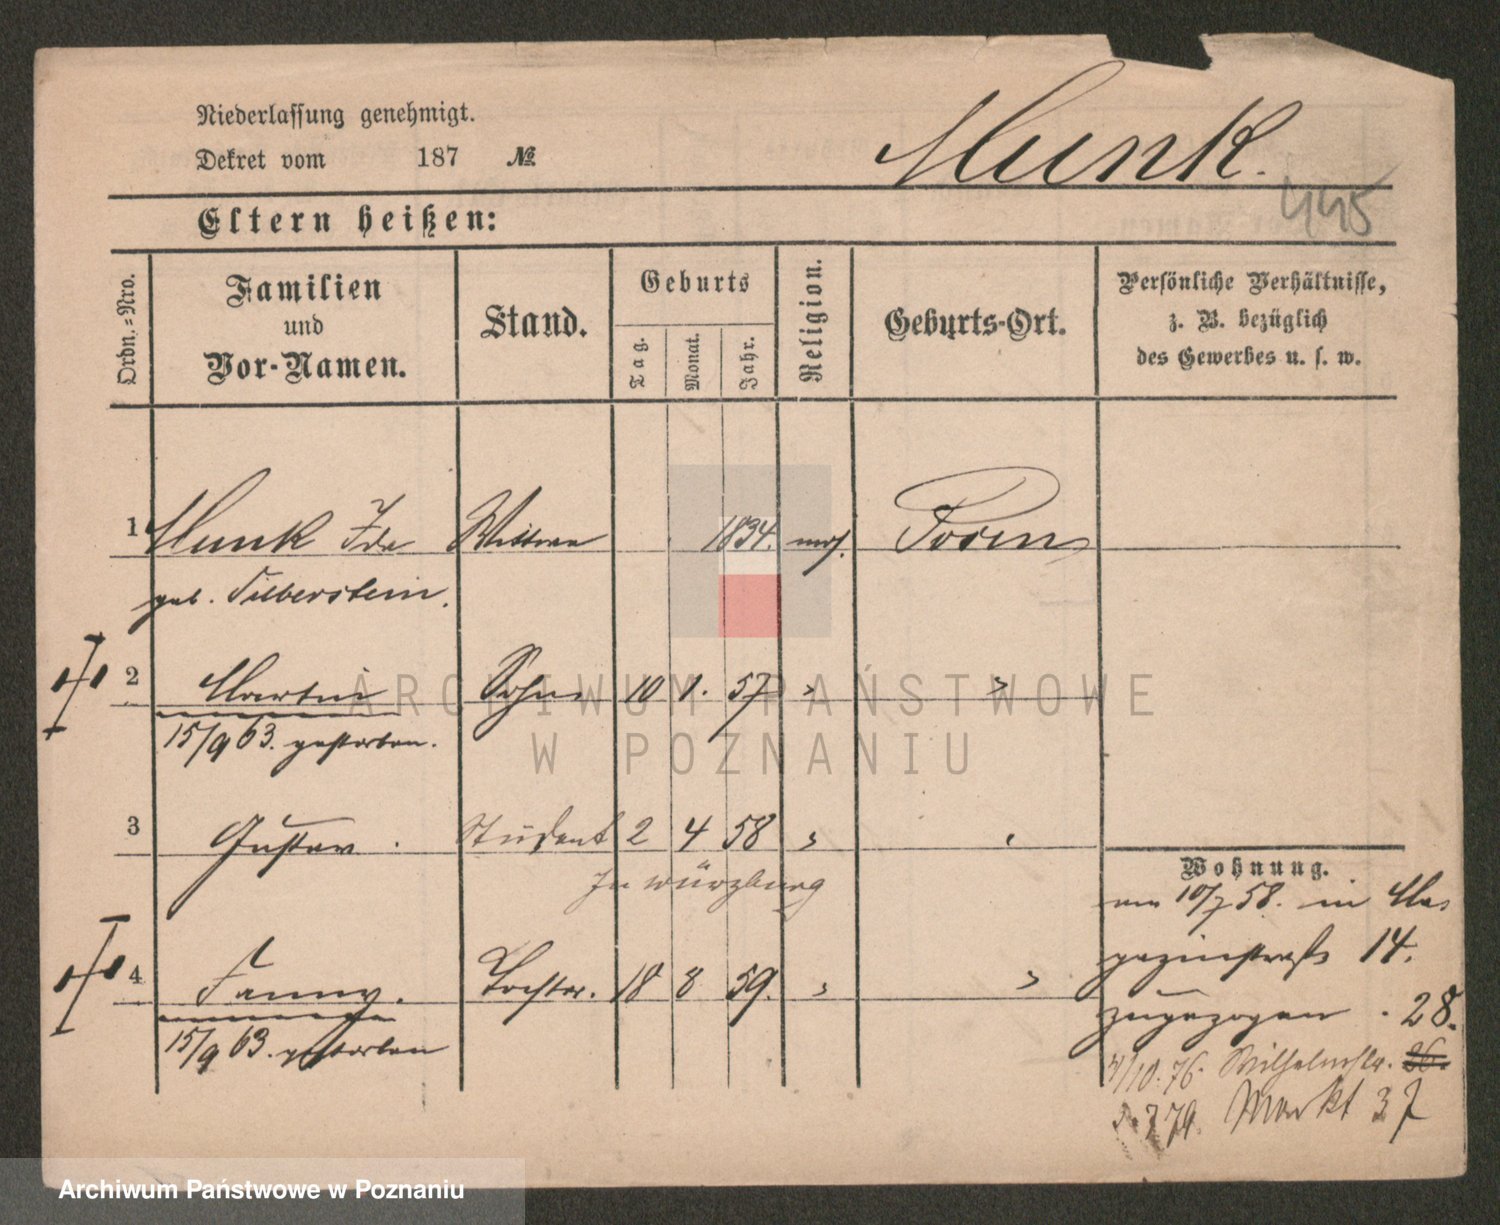 Niederlassung genehmigt.
Dekret vom 187 №
Munk.
445
Eltern heißen:
Ordn.=Nro.
Familien
und
Vor-Namen.
Stand.
Geburts
Tag.
Monat.
Jahr.
Religion.
Geburts-Ort.
Persönliche Verhältnisse,
z. B. bezüglich
des Gewerbes u. s. w.
1 Munk Ida Wittwe 1834. mos. Posen
geb. Silberstein.
2 Martin Sohn 10 1. 57 " "
15/9 63. gestorben.
3 Gustav. Student 2 4 58 " "
In Würzburg
4 Fanny. Tochter. 18 8 59. " "
15/9 63. gestorben
Wohnung.
am 10/7 58. in Ma-
gazinstraße 14.
zugezogen . 28.
4/10. 76. Wilhelmstr. 26.
7 79. Markt 37
ARCHIWUM PAŃSTWOWE
W POZNANIU
Archiwum Państwowe w Poznaniu